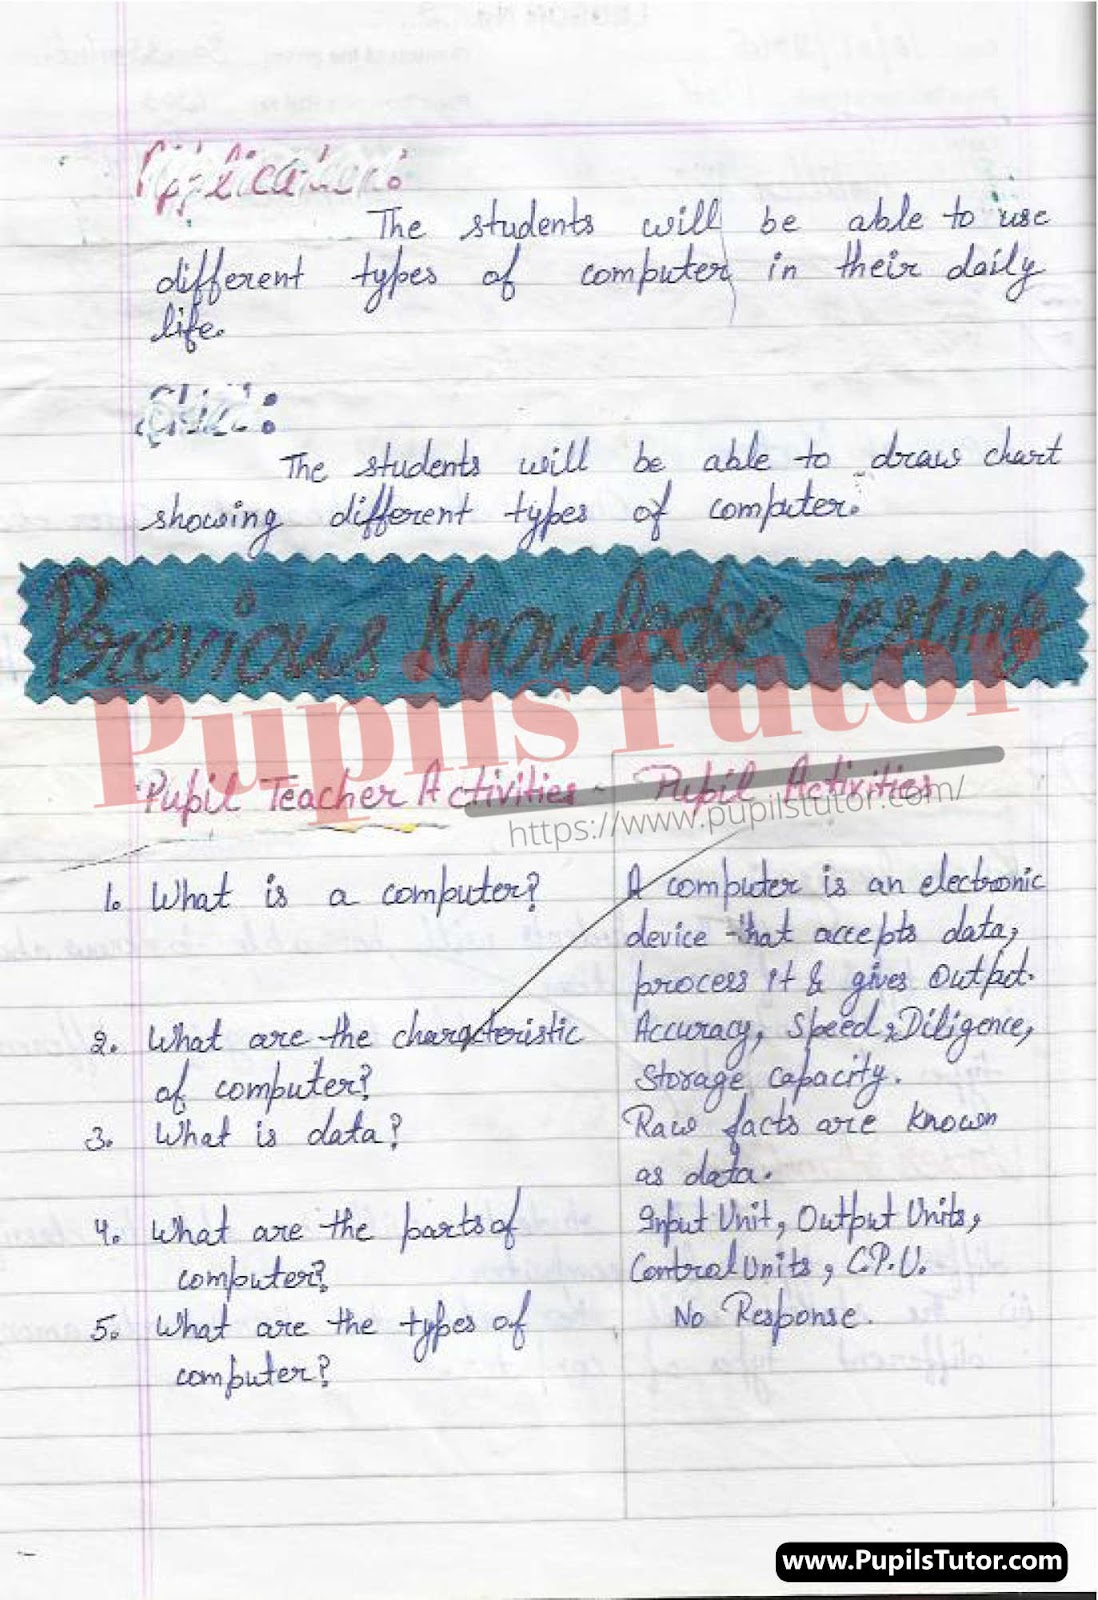 Application:
The students will be able to use
different types of computer in their daily
life.
Skill:
The students will be able to draw chart
showing different types of computer.
Previous Knowledge Testing
PupilsTutor
https://www.pupilstutor.com/
Pupil Teacher Activities - Pupil Activities
1. What is a computer? A computer is an electronic
device that accepts data,
process it & gives output.
2. What are the characteristic Accuracy, Speed, Diligence,
of computer? Storage capacity.
3. What is data? Raw facts are known
as data.
4. What are the parts of Input Unit, Output Units,
computer? Control Units, C.P.U.
5. What are the types of No Response.
computer?
www.PupilsTutor.com